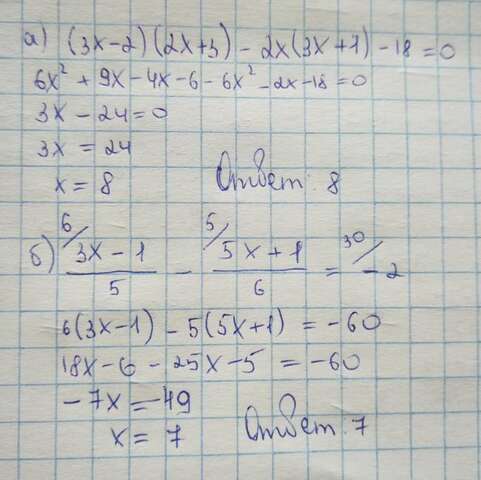 а) (3x-2)(2x+3) - 2x(3x+1) - 18 = 0
6x² + 9x - 4x - 6 - 6x² - 2x - 18 = 0
3x - 24 = 0
3x = 24
x = 8 Ответ: 8
б) 6/ (3x-1)/5 - 5/ (5x+1)/6 = 30/ -2
6(3x-1) - 5(5x+1) = -60
18x - 6 - 25x - 5 = -60
-7x = -49
x = 7 Ответ: 7